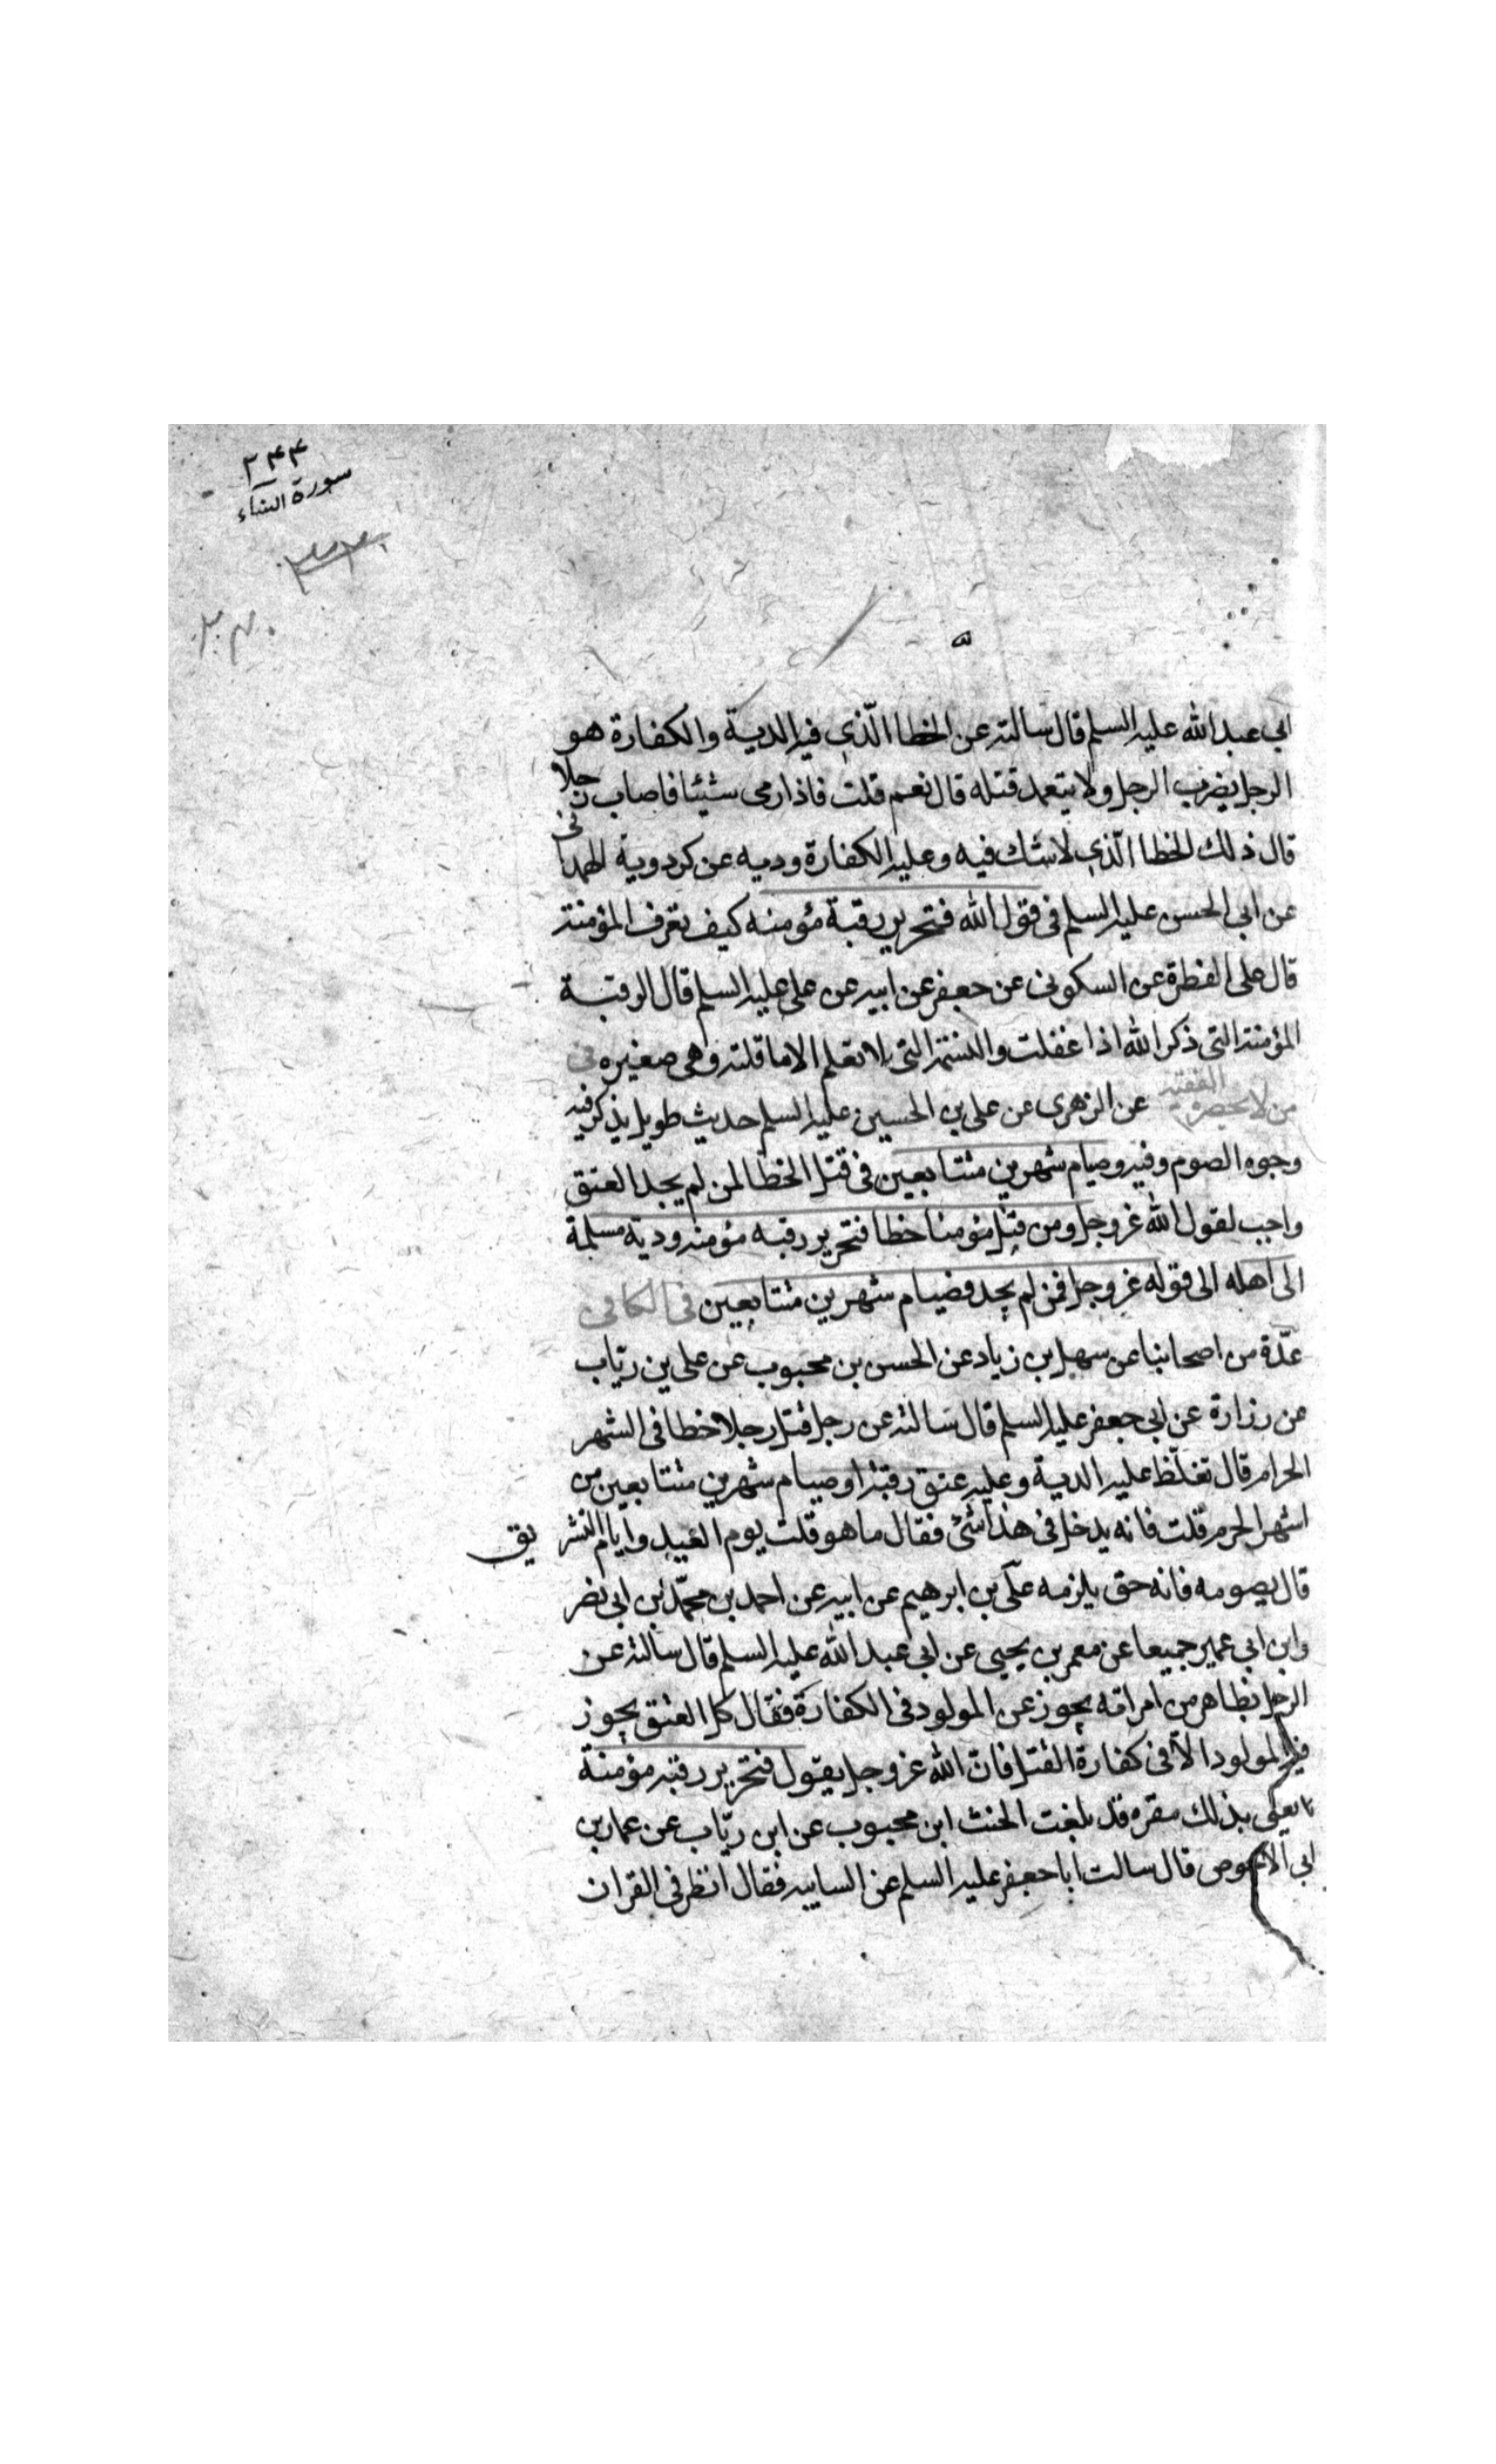 ۲۴۴
سورة النساء
ابي عبدالله عليه السلم قال سالته عن الخطا الّذي فيه الدية والكفارة هو
الرجل يضرب الرجل ولا يتعمد قتله قال نعم قلت فاذا رمى شيئا فاصاب رجلا
قال ذلك الخطا الّذي لاشك فيه وعليه الكفارة وديه عن كردوية الهمدانى
عن ابي الحسن عليه السلم فى قول الله فتحرير رقبة مؤمنه كيف تعرف المؤمنة
قال على الفطرة عن السكونى عن جعفر عن ابيه عن على عليه السلم قال الرقبة
المؤمنة التى ذكر الله اذا عقلت والنسمة التى لا تعلم الا ما قلته وهى صغيره فى
من لا يحضره الفقيه عن الزهرى عن على بن الحسين عليه السلم حديث طويل يذكر فيه
وجوه الصوم وفيه وصيام شهرين متتابعين فى قتل الخطا لمن لم يجد العتق
واجب لقول الله عز وجل ومن قتل مؤمنا خطا فتحرير رقبه مؤمنه ودية مسلمة
الى اهله الى قوله عز وجل فمن لم يجد فصيام شهرين متتابعين فى الكافى
عدّة من اصحابنا عن سهل بن زياد عن الحسن بن محبوب عن على بن ريّاب
عن زرارة عن ابي جعفر عليه السلم قال سالته عن رجل قتل رجلا خطا فى الشهر
الحرام قال تغلّظ عليه الدية وعليه عتق رقبة او صيام شهرين متتابعين من
اشهر الحرم قلت فانه يدخل فى هذا شئ فقال ما هو قلت يوم العيد وايام التشريق
قال يصومه فانه حق يلزمه على بن ابرهيم عن ابيه عن احمد بن محمّد بن ابي نصر
وابن ابي عمير جميعا عن معمر بن يحيى عن ابي عبد الله عليه السلم قال سالته عن
الرجل يظاهر من امراته يجوز عن المولود فى الكفارة فقال كل العتق يجوز
فيه المولود الاّ فى كفارة القتل فان الله عز وجل يقول فتحرير رقبة مؤمنة
يعنى بذلك مقره قد بلغت الحنث ابن محبوب عن ابن ريّاب عن عمار بن
ابي الاحوص قال سالت ابا جعفر عليه السلم عن السايبه فقال انظر فى القران